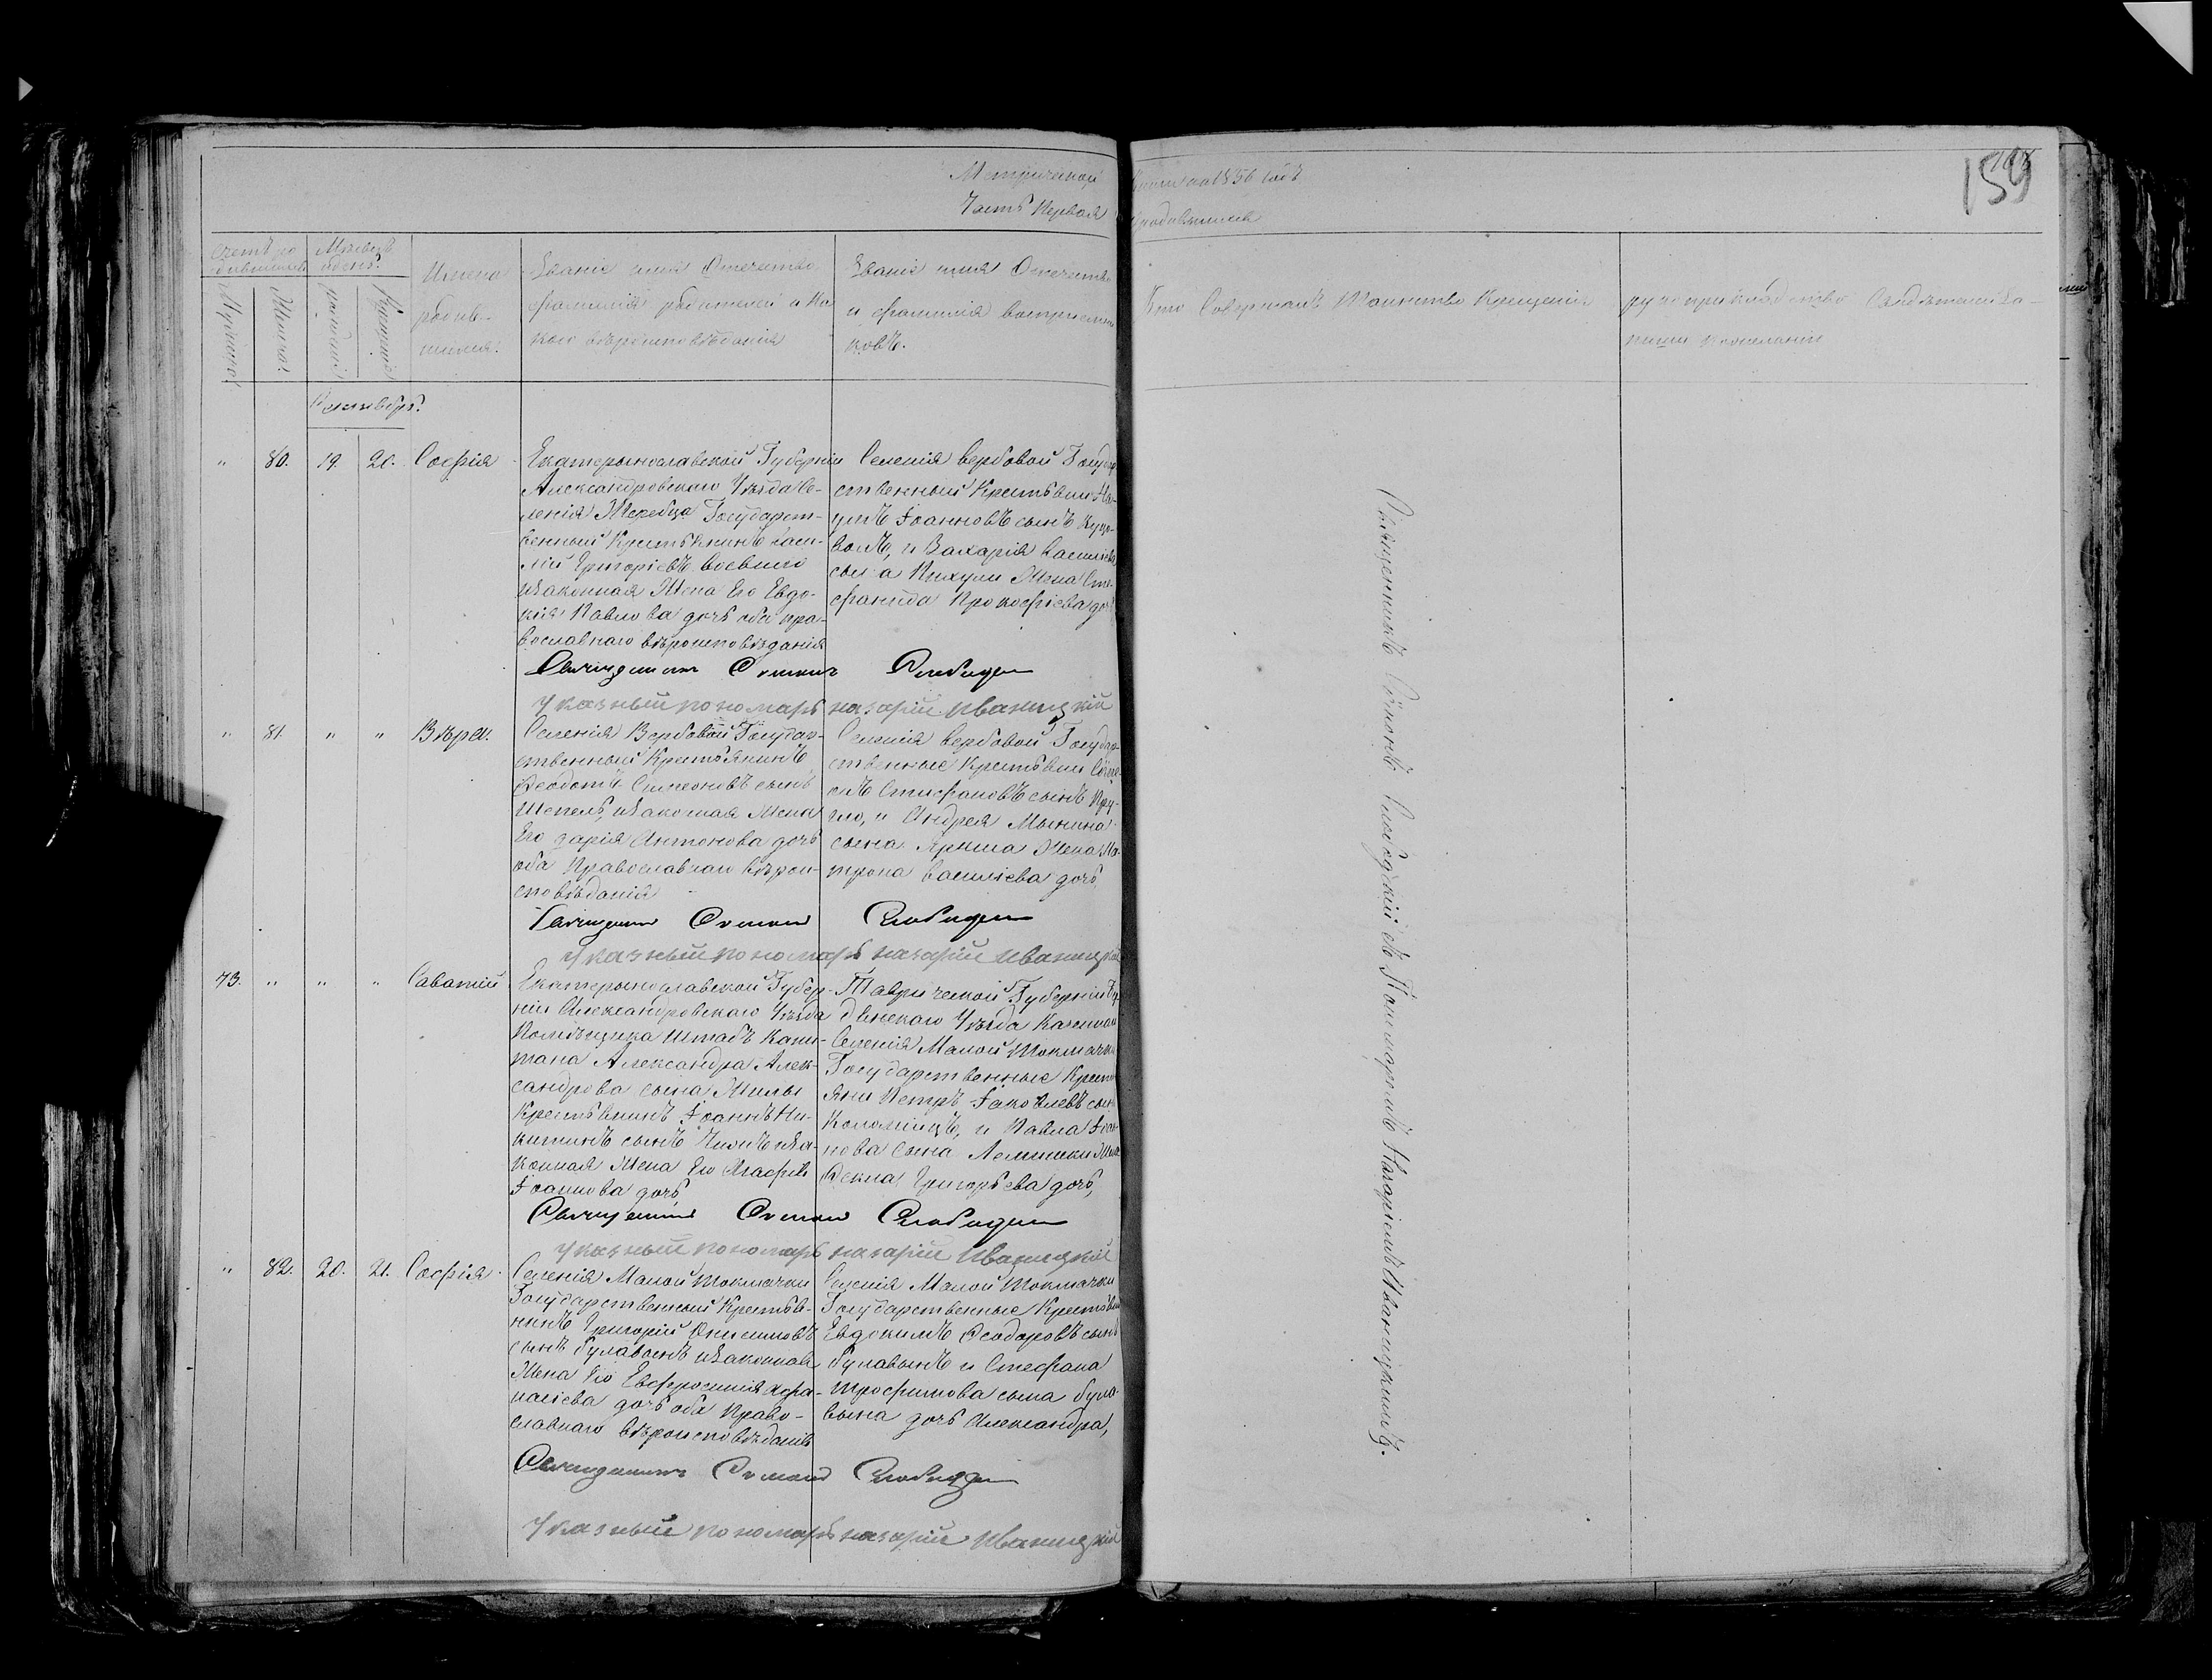 Метрической книги на 1856 годъ
Часть Первая о родившихся
159
Счетъ родившихся
Мужеска.
Женска.
Мѣсяцъ и день.
рожденія
Крещенія
Имена
родив-
шихся.
Званіе имя Отчество
фамилія родителей и Ка-
кого вѣроисповѣданія
Званіе имя Отечество
и фамилія воспріемни-
ковъ.
Кто Совершалъ Таинство Крещенія
рукоприкладство Свидѣтелей за-
писи по желанію
Сентябрь.
" 80. 19. 20. Софія
Екатерынославской Губерніи
Александровскаго Уѣзда Се-
ленія Жеребца Государст-
венный Крестьянинъ Васи-
лій Григоріевъ
изаконная Жена Его Евдо-
кія Павлова дочь оба пра-
вославнаго вѣроисповѣданія
Селенія Вербовой Государ-
ственный Крестьянинъ На-
умъ Іоанновъ сынъ
и Захарія Василіева
сына Пихули Жена Сте-
фанида Прокофіева дочь
Священникъ Симонъ
Указный пономарь назарій Иваницкій
" 81. " " Вѣра.
Селенія Вербовой Государ-
ственный Крестьянинъ
Феодотъ Симеоновъ сынъ
Шепель, изаконная Жена
Его дарія Антонова дочь
оба Православнаго вѣрои-
сповѣданія
Селенія вербовой Государ-
ственные Крестьяни
Стефановъ сынъ
и Андрея
сына Жена Ма-
трона василіева дочь
Священникъ Симонъ
Указный пономарь назарій Иваницкій
73. " " " Саватій
Екатерынославской Губер-
ніи Александровскаго Уѣзда
Помѣщика Штабъ Капи-
тана Александра Алек-
сандрова сына
Крестьянинъ Іоаннъ Ни-
китинъ сынъ иза-
конная Жена Его Агафія
Іоаннова дочь,
Таврической Губерніи Бер-
дянскаго Уѣзда Казенного
Селенія Малой Токмачки
Государственные Кресть-
яни Петръ Іаковлевъ сынъ
Коломіицъ, и Павла Іоан-
нова Сына Жена
Фекла Григорьева дочь,
Священникъ Симонъ
Указный пономарь назарій Иваницкій
" 82. 20. 21. Софія
Селенія Малой Токмачки
Государственный Крестья-
нинъ Григорій Онисимовъ
сынъ булавынъ изаконная
Жена Его Евфросинія Афа-
насіева дочь оба Право-
славнаго вѣроисповѣданія
Селенія Малой Токмачки
Государственные Крестьяни
Евдокимъ Феодоровъ сынъ
булавынъ и Стефана
Трофимова сына була-
вына дочь Александра,
Священникъ Симонъ
Указный пономарь назарій Иваницкій
Священникъ Симонъ Слободскій съ Пономаремъ Назаріемъ Иваницкимъ.